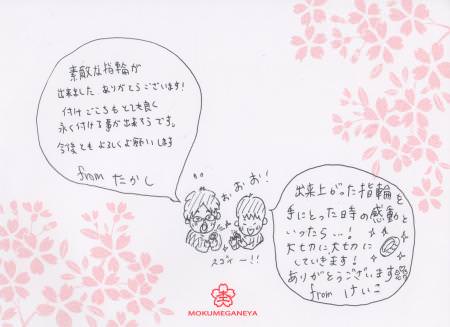 素敵な指輪が
出来ました ありがとうございます!
付けごこちもとても良く
永く付ける事が出来そうです。
今後ともよろしくお願いします
from たかし
おぉお!
スゴイー!!
出来上がった指輪を
手にとった日時の感動と
いったら…!
大切に大切に
していきます!
ありがとうございます
from けいこ
MOKUMEGANEYA